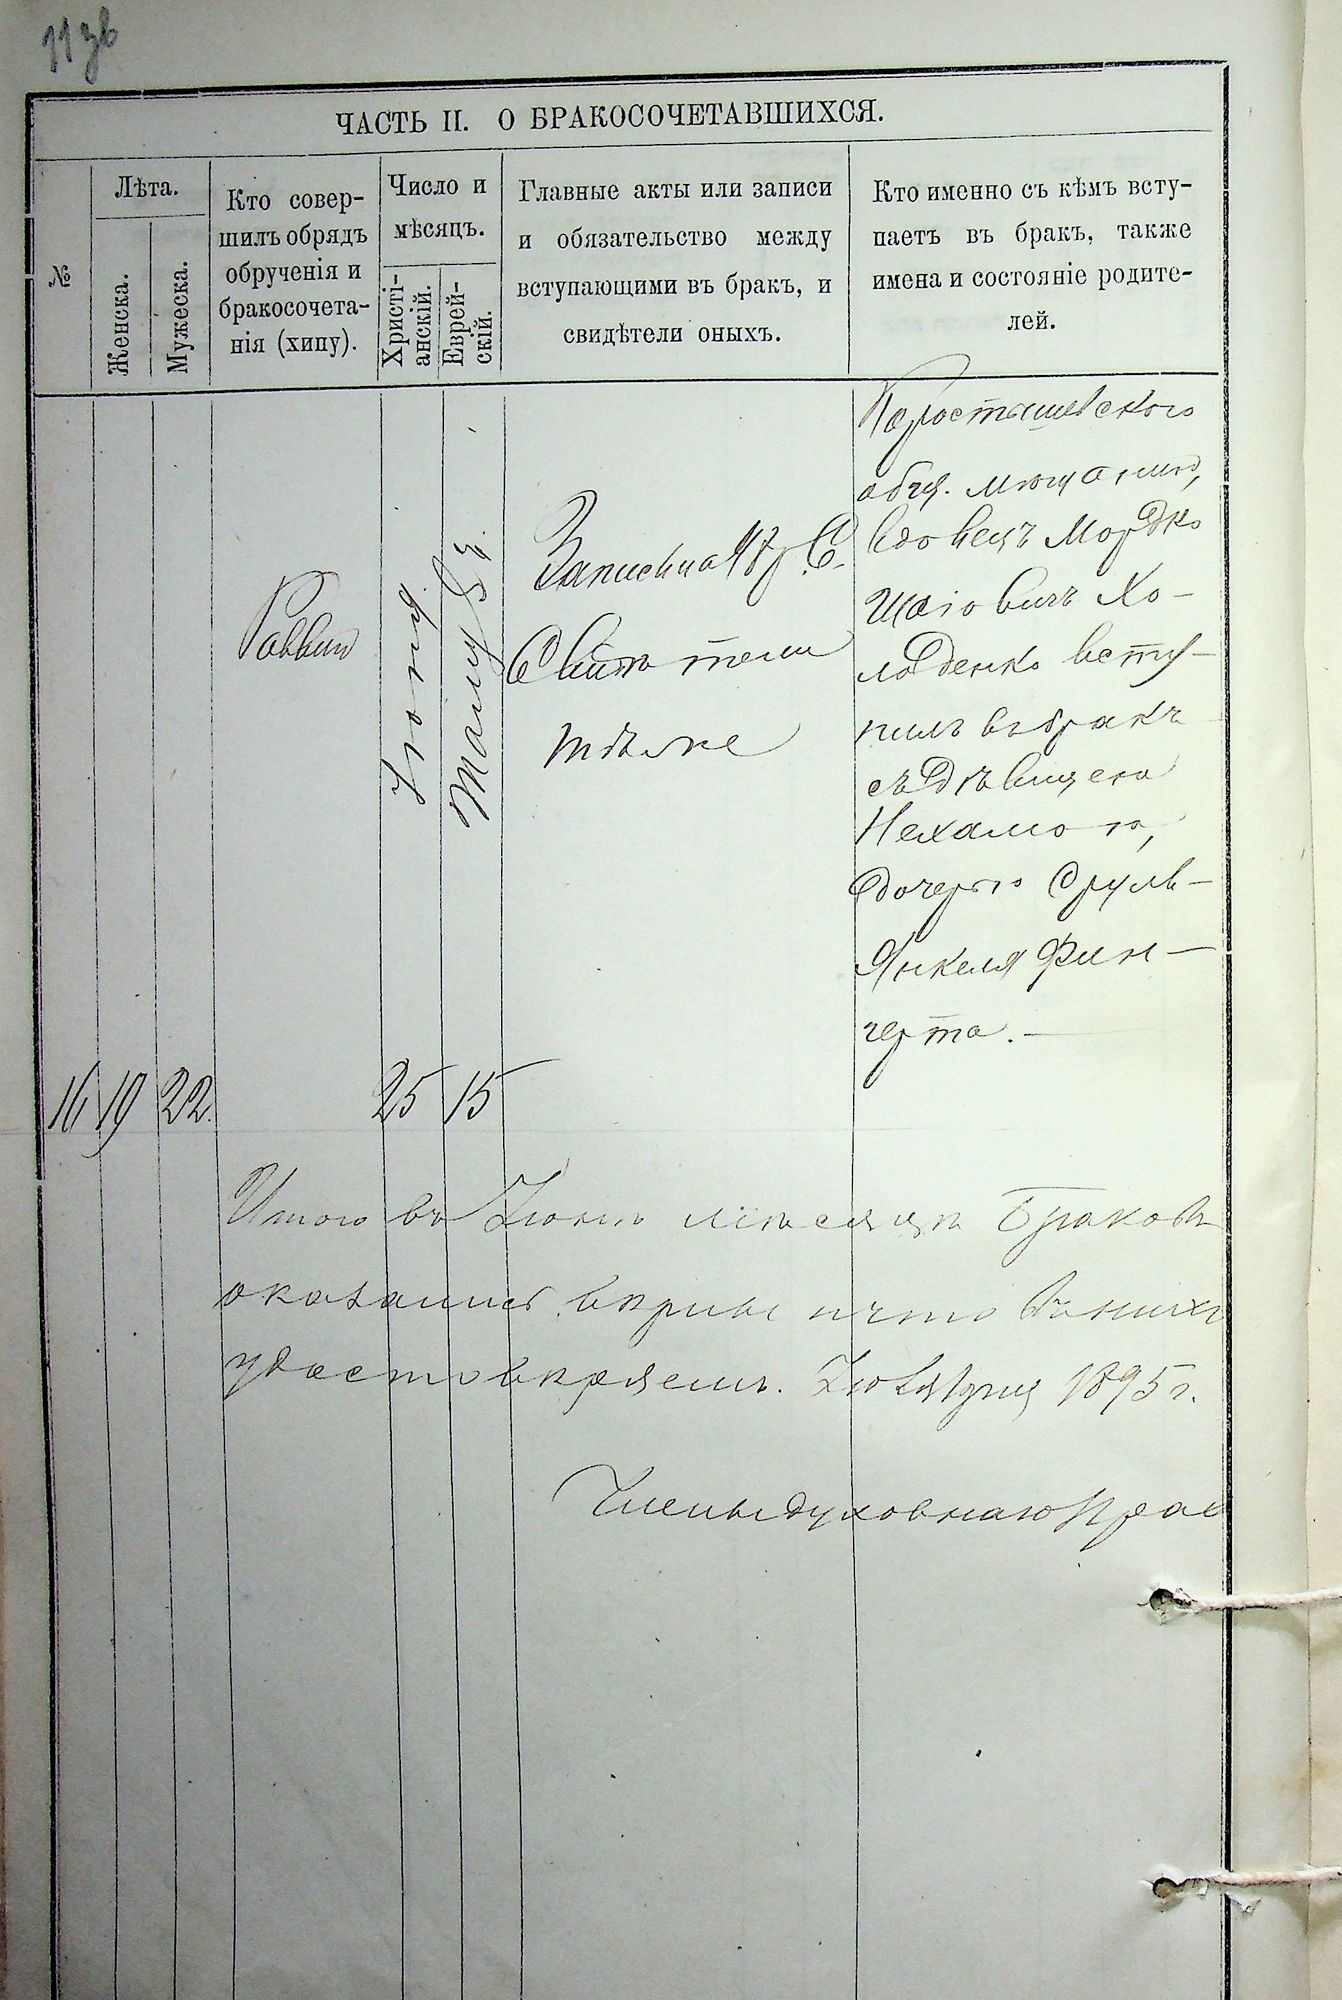 113б
ЧАСТЬ II. О БРАКОСОЧЕТАВШИХСЯ.
№
Лѣта.
Женска.
Мужеска.
Кто совер-
шилъ обрядъ
обрученія и
бракосочета-
нія (хипу).
Число и
мѣсяцъ.
Христі-
анскій.
Еврей-
скій.
Главные акты или записи
и обязательство между
вступающими въ бракъ, и
свидѣтели оныхъ.
Кто именно съ кѣмъ всту-
паетъ въ бракъ, также
имена и состояніе родите-
лей.
16
19
22
Раввин
Іюня
25
Тамузъ
15
Запись на 48 р. С.
Свидѣтели
тѣ же
Коростышевского
общ. мѣщанинъ,
вдовецъ Мордко
Шаіовичъ Хо-
лоденко всту-
пилъ въ бракъ
съ дѣвицею
Нехамою,
дочерью Сруль-
Янкеля Фин-
герта.
Итого въ Іюнѣ мѣсяцѣ Браковъ
оказались вѣрны и что въ нихъ
удостовѣряемъ. 1895 г.
Члены духовнаго Прав